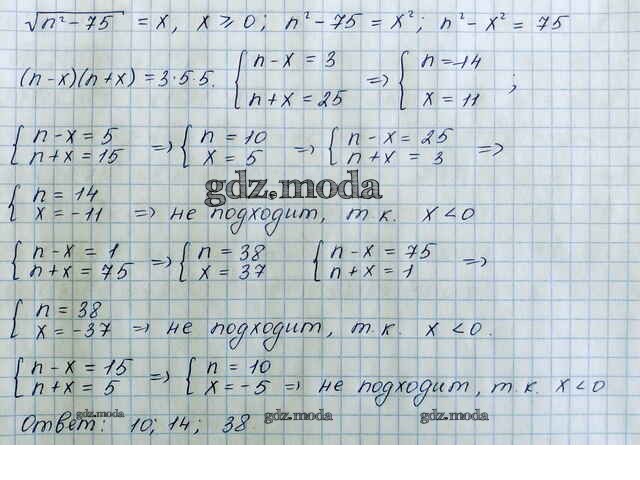 √n²-75 = x, x ⩾ 0; n²-75 = x²; n²-x² = 75
(n-x)(n+x) = 3·5·5. { n-x = 3 n+x = 25 => { n = 14 x = 11 ;
{ n-x = 5 n+x = 15 => { n = 10 x = 5 => { n-x = 25 n+x = 3 =>
gdz.moda
{ n = 14 x = -11 => не подходит, т.к. x<0
{ n-x = 1 n+x = 75 => { n = 38 x = 37 { n-x = 75 n+x = 1 =>
{ n = 38 x = -37 => не подходит, т.к. x<0.
{ n-x = 15 n+x = 5 => { n = 10 x = -5 => не подходит, т.к. x<0
gdz.moda gdz.moda gdz.moda
Ответ: 10; 14; 38